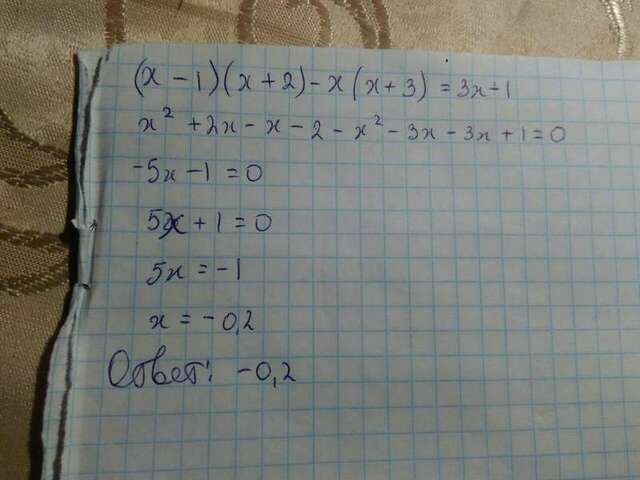 (x - 1)(x + 2) - x(x + 3) = 3x - 1
x² + 2x - x - 2 - x² - 3x - 3x + 1 = 0
-5x - 1 = 0
5x + 1 = 0
5x = -1
x = -0,2
Ответ: -0,2